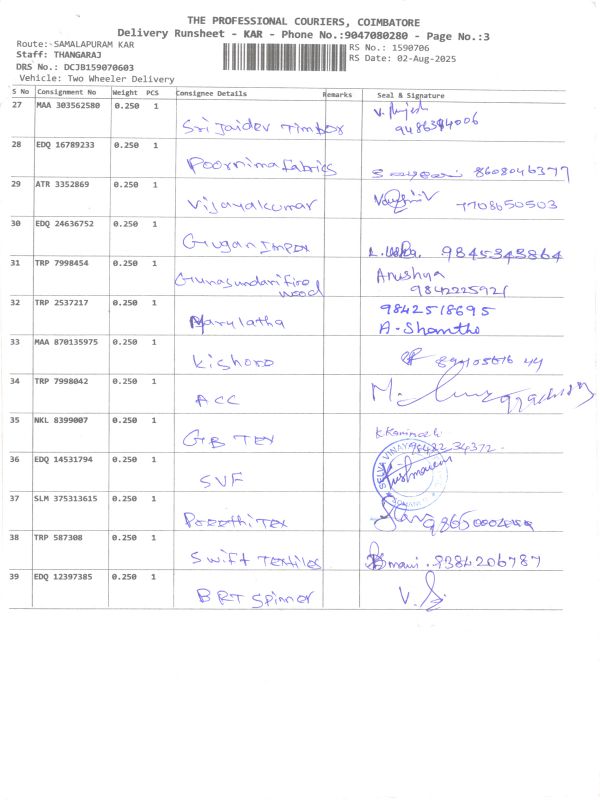 THE PROFESSIONAL COURIERS, COIMBATORE
Delivery Runsheet - KAR - Phone No.:9047080280 - Page No.:3
Route: SAMALAPURAM KAR
RS No.: 1590706
Staff: THANGARAJ
RS Date: 02-Aug-2025
DRS No.: DCJB159070603
Vehicle: Two Wheeler Delivery
S No Consignment No Weight PCS Consignee Details Remarks Seal & Signature
27 MAA 303562580 0.250 1
Sri Jaidev Timber
28 EDQ 16789233 0.250 1
Poornima fabrics 8608046377
29 ATR 3352869 0.250 1
Vijayakumar 7708650503
30 EDQ 24636752 0.250 1
Gugan Impex 9845343864
31 TRP 7998454 0.250 1 Anushya
Gunasundari fire wood 9842225921
32 TRP 2537217 0.250 1 9842518695
Marulatha A-Shantho
33 MAA 870135975 0.250 1
Kishoro
34 TRP 7998042 0.250 1
ACC
35 NKL 8399007 0.250 1
GB TEX 98482 34372
36 EDQ 14531794 0.250 1
SVF
SELVA VINAY
37 SLM 375313615 0.250 1
Preethi Tex
38 TRP 587308 0.250 1
Swift Textiles 9384206787
39 EDQ 12397385 0.250 1
BRT Spinner